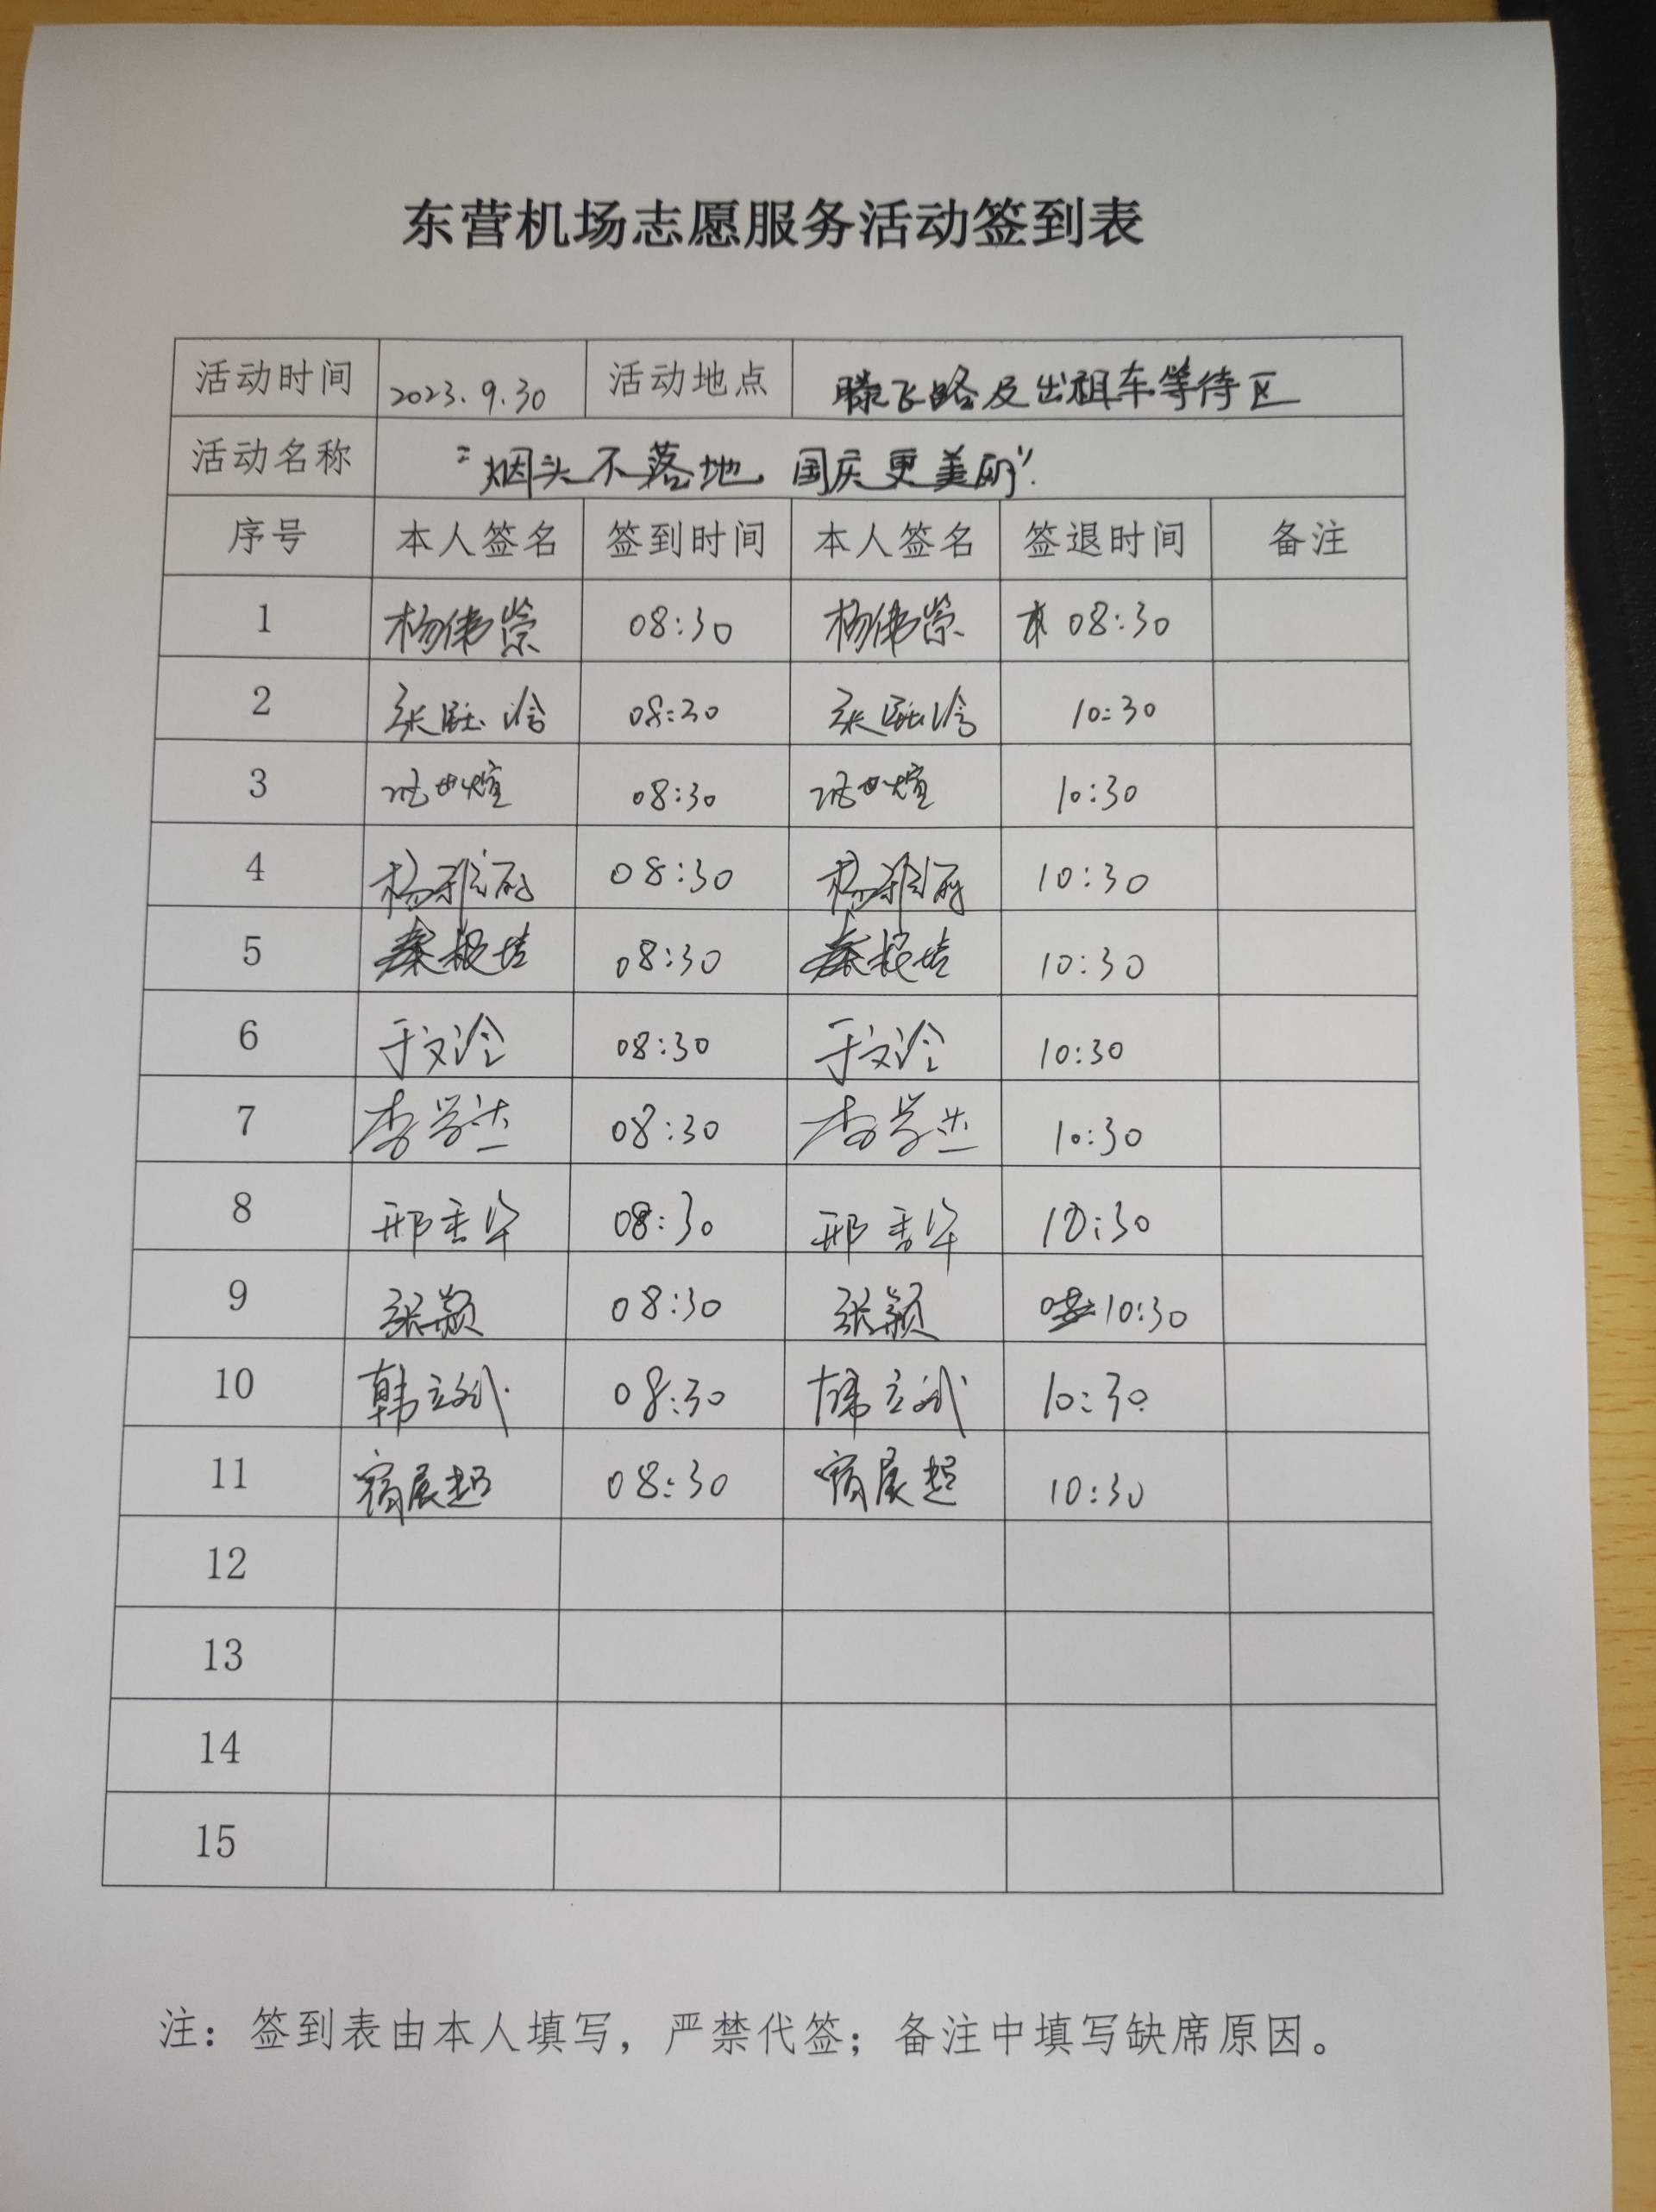 东营机场志愿服务活动签到表
活动时间 2023.9.30 活动地点 腾飞路及出租车等待区
活动名称 "烟头不落地，国庆更美丽"
序号 本人签名 签到时间 本人签名 签退时间 备注
1 杨伟崇 08:30 杨伟崇 08:30
2 08:30 10:30
3 08:30 10:30
4 08:30 10:30
5 08:30 10:30
6 于文泠 08:30 于文泠 10:30
7 李学兰 08:30 李学兰 10:30
8 邢秀华 08:30 邢秀华 10:30
9 张颖 08:30 张颖 10:30
10 韩立斌 08:30 韩立斌 10:30
11 宿展超 08:30 宿展超 10:30
12
13
14
15
注：签到表由本人填写，严禁代签；备注中填写缺席原因。